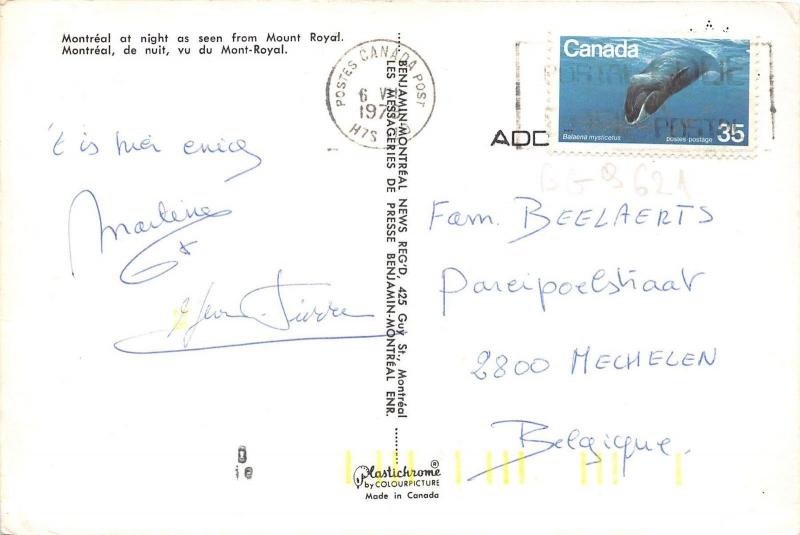 Montréal at night as seen from Mount Royal.
Montréal, de nuit, vu du Mont-Royal.
't is hier enig
Martine
&
Jean-Pierre
BENJAMIN-MONTRÉAL NEWS REG'D, 425 Guy St., Montréal
LES MESSAGERIES DE PRESSE BENJAMIN-MONTRÉAL ENR.
POSTES CANADA POST
6 V
197
H7S
Canada
Balaena mysticetus
postes-postage
35
Fam. BEELAERTS
Pareipoelstraat
2800 MECHELEN
Belgique
Plastichrome®
by COLOURPICTURE
Made in Canada